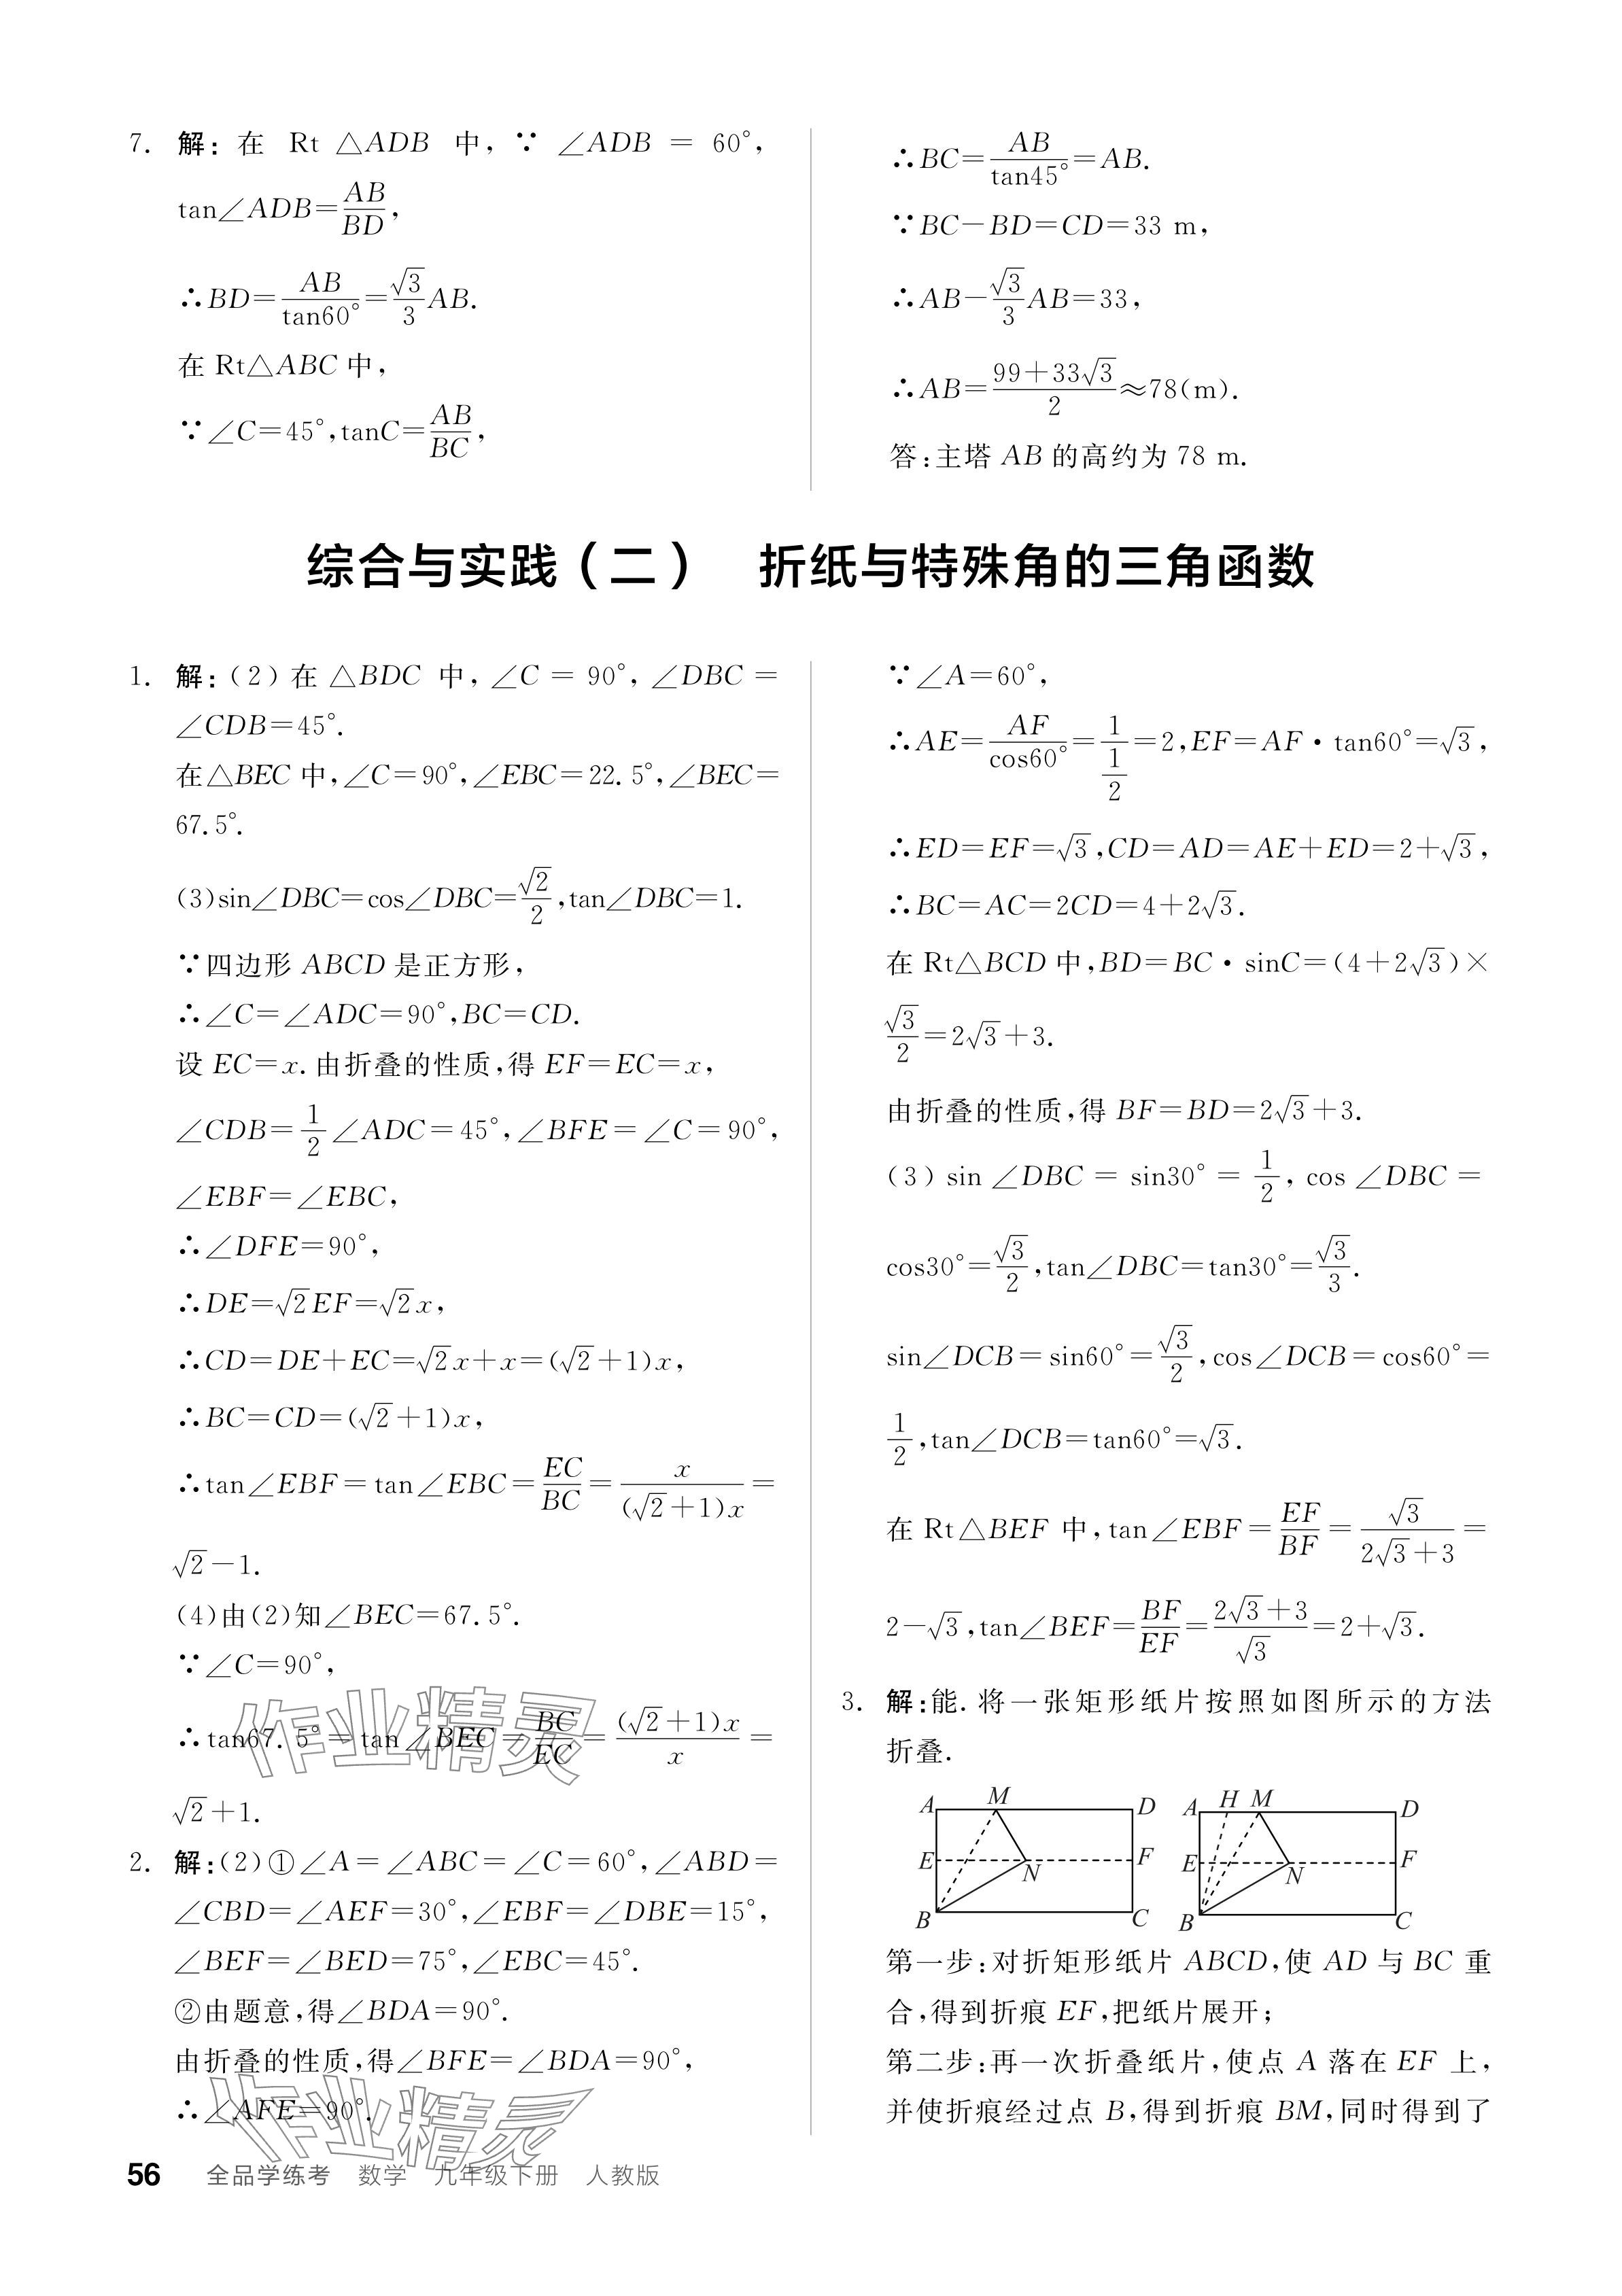 7. 解:在 Rt △ADB 中,∵ ∠ADB = 60°,
tan∠ADB=AB/BD,
∴BD=AB/tan60°=√3/3AB.
在 Rt△ABC 中,
∵∠C=45°,tanC=AB/BC,
∴BC=AB/tan45°=AB.
∵BC-BD=CD=33 m,
∴AB-√3/3AB=33,
∴AB=(99+33√3)/2≈78(m).
答:主塔 AB 的高约为 78 m.
综合与实践(二) 折纸与特殊角的三角函数
1. 解:(2)在 △BDC 中,∠C = 90°,∠DBC =
∠CDB=45°.
在△BEC 中,∠C=90°,∠EBC=22.5°,∠BEC=
67.5°.
(3)sin∠DBC=cos∠DBC=√2/2,tan∠DBC=1.
∵四边形 ABCD 是正方形,
∴∠C=∠ADC=90°,BC=CD.
设 EC=x.由折叠的性质,得 EF=EC=x,
∠CDB=1/2∠ADC=45°,∠BFE=∠C=90°,
∠EBF=∠EBC,
∴∠DFE=90°,
∴DE=√2EF=√2x,
∴CD=DE+EC=√2x+x=(√2+1)x,
∴BC=CD=(√2+1)x,
∴tan∠EBF=tan∠EBC=EC/BC=x/(√2+1)x=
√2-1.
(4)由(2)知∠BEC=67.5°.
∵∠C=90°,
∴tan67.5°=tan∠BEC=BC/EC=(√2+1)x/x=
√2+1.
2. 解:(2)①∠A=∠ABC=∠C=60°,∠ABD=
∠CBD=∠AEF=30°,∠EBF=∠DBE=15°,
∠BEF=∠BED=75°,∠EBC=45°.
②由题意,得∠BDA=90°.
由折叠的性质,得∠BFE=∠BDA=90°,
∴∠AFE=90°.
∵∠A=60°,
∴AE=AF/cos60°=1/(1/2)=2,EF=AF·tan60°=√3,
∴ED=EF=√3,CD=AD=AE+ED=2+√3,
∴BC=AC=2CD=4+2√3.
在 Rt△BCD 中,BD=BC·sinC=(4+2√3)×
√3/2=2√3+3.
由折叠的性质,得 BF=BD=2√3+3.
(3) sin ∠DBC = sin30° = 1/2, cos ∠DBC =
cos30°=√3/2,tan∠DBC=tan30°=√3/3.
sin∠DCB=sin60°=√3/2,cos∠DCB=cos60°=
1/2,tan∠DCB=tan60°=√3.
在 Rt△BEF 中,tan∠EBF=EF/BF=√3/(2√3+3)=
2-√3,tan∠BEF=BF/EF=(2√3+3)/√3=2+√3.
3. 解:能.将一张矩形纸片按照如图所示的方法
折叠.
A M D A H M D
E N F E N F
B C B C
第一步:对折矩形纸片 ABCD,使 AD 与 BC 重
合,得到折痕 EF,把纸片展开;
第二步:再一次折叠纸片,使点 A 落在 EF 上,
并使折痕经过点 B,得到折痕 BM,同时得到了
作业精灵
作业精灵
56 全品学练考 数学 九年级下册 人教版